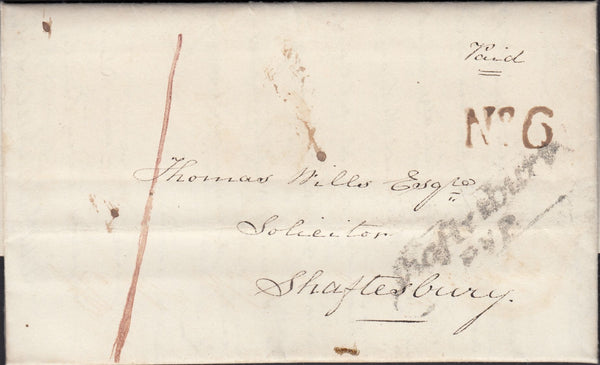 Paid
No 6
Thomas Wills Esqre
Solicitor
Shaftesbury
Shaftesbury.